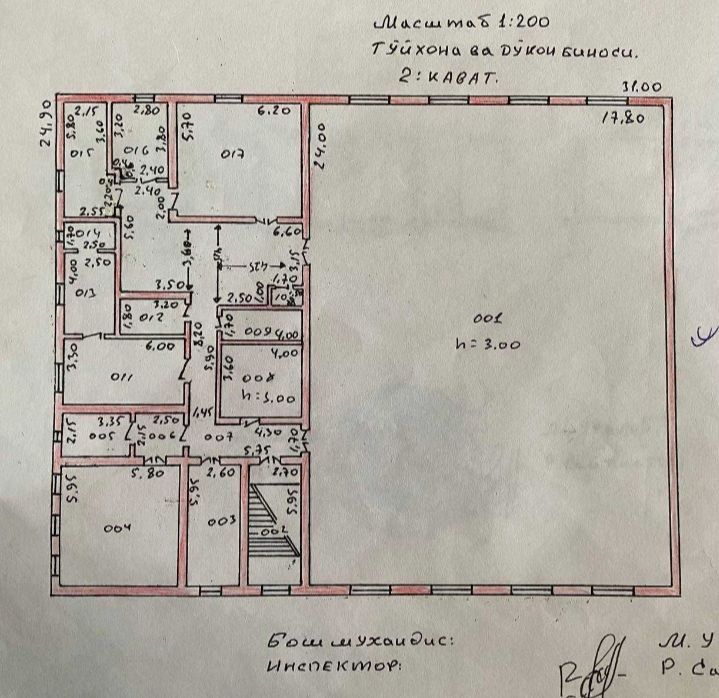 Масштаб 1:200
Тўйхона ва дўкон биноси.
2: кават.
31.00
24,90
2,15
2,80
6.20
17,80
5,80
3,60
3,20
3,80
5,70
24,00
015
016
017
2,40
2,40
2,20
2,00
2,55
5,60
014
1,70
2,50
3,60
6,60
425
3,15
4,00
2,50
013
3,50
2,50
1,00
1,70
10
3,20
012
1,80
8,20
1,70
009
4,00
001
h=3.00
3,30
6,00
011
5,90
3,60
4,00
008
h=3,00
1,45
2,15
3,35
005
2,15
2,50
006
007
4,30
1,70
5,75
5,80
2,60
2,70
5,95
004
5,95
003
002
5,95
Бош мухандис:
Инспектор:
М. У
Р. Са